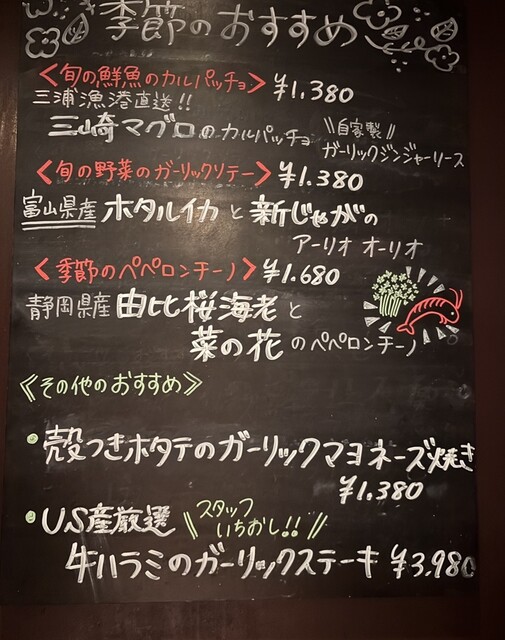 季節のおすすめ
＜旬の鮮魚のカルパッチョ＞ ¥1.380
三浦漁港直送!!
三崎マグロのカルパッチョ \\自家製//
ガーリックジンジャーソース
＜旬の野菜のガーリックソテー＞ ¥1.380
富山県産 ホタルイカと新じゃがの
アーリオ オーリオ
＜季節のペペロンチーノ＞ ¥1.680
静岡県産 由比桜海老と
菜の花のペペロンチーノ
≪その他のおすすめ≫
・殻つきホタテのガーリックマヨネーズ焼き
¥1.380
・US産厳選 \\スタッフ
いちおし!!//
牛ハラミのガーリックステーキ ¥3.980